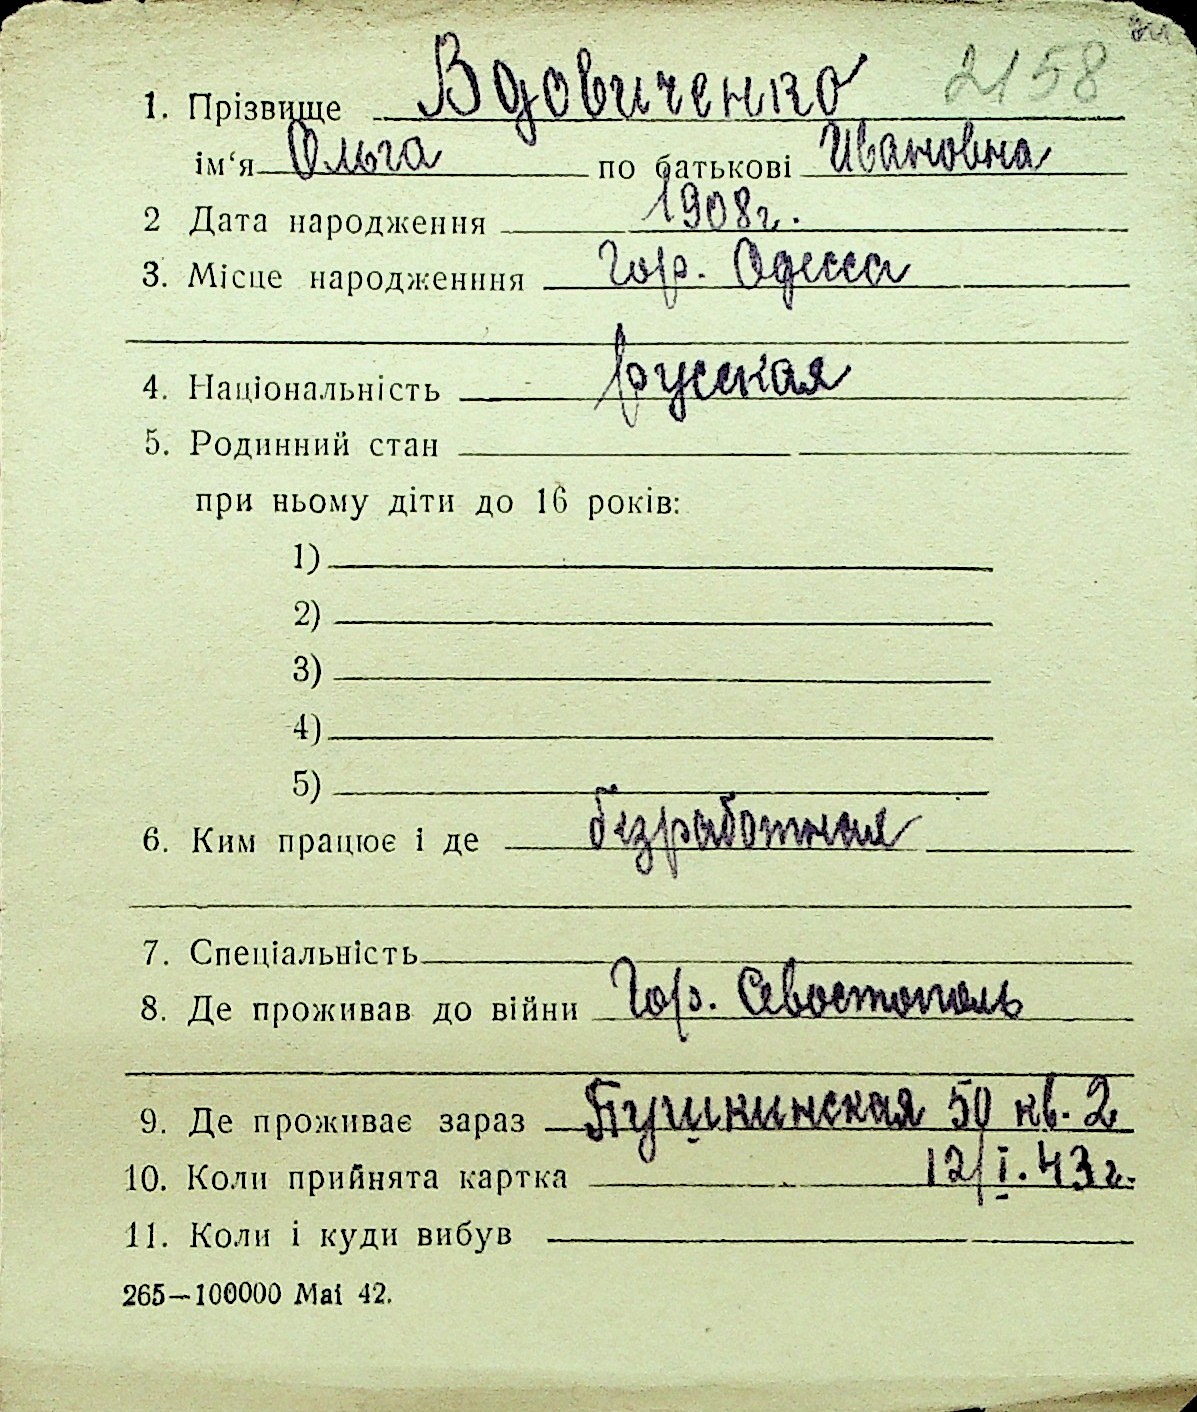 2158
1. Прізвище Вдовиченко
ім‘я Ольга по батькові Ивановна
2 Дата народження 1908г.
3. Місце народженння Гор. Одесса
4. Національність русская
5. Родинний стан
при ньому діти до 16 років:
1)
2)
3)
4)
5)
6. Ким працює і де безработная
7. Спеціальність
8. Де проживав до війни Гор. Севостополь
9. Де проживає зараз Пушкинская 50 кв. 2
10. Коли прийнята картка 12/I. 43г.
11. Коли і куди вибув
265—100000 Mai 42.